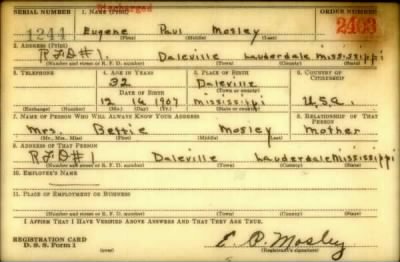 Discharged
SERIAL NUMBER 1. NAME (Print) ORDER NUMBER
1244 Eugene Paul Mosley 2403
(First) (Middle) (Last)
2. ADDRESS (Print)
R.F.D #1. Daleville Lauderdale Mississippi
(Number and street or R. F. D. number) (Town) (County) (State)
3. TELEPHONE 4. AGE IN YEARS 5. PLACE OF BIRTH 6. COUNTRY OF CITIZENSHIP
32 Daleville
DATE OF BIRTH (Town or county)
12 16 1907 Mississippi U.S.a.
(Exchange) (Number) (Mo.) (Day) (Yr.) (State or country)
7. NAME OF PERSON WHO WILL ALWAYS KNOW YOUR ADDRESS 8. RELATIONSHIP OF THAT PERSON
Mrs. Bettie Mosley Mother
(Mr., Mrs., Miss) (First) (Middle) (Last)
9. ADDRESS OF THAT PERSON
R.F.D #1 Daleville Lauderdale Mississippi
(Number and street or R. F. D. number) (Town) (County) (State)
10. EMPLOYER'S NAME
11. PLACE OF EMPLOYMENT OR BUSINESS
(Number and street or R. F. D. number) (Town) (County) (State)
I AFFIRM THAT I HAVE VERIFIED ABOVE ANSWERS AND THAT THEY ARE TRUE.
REGISTRATION CARD
D. S. S. Form 1 E. P. Mosley
(Registrant's signature)